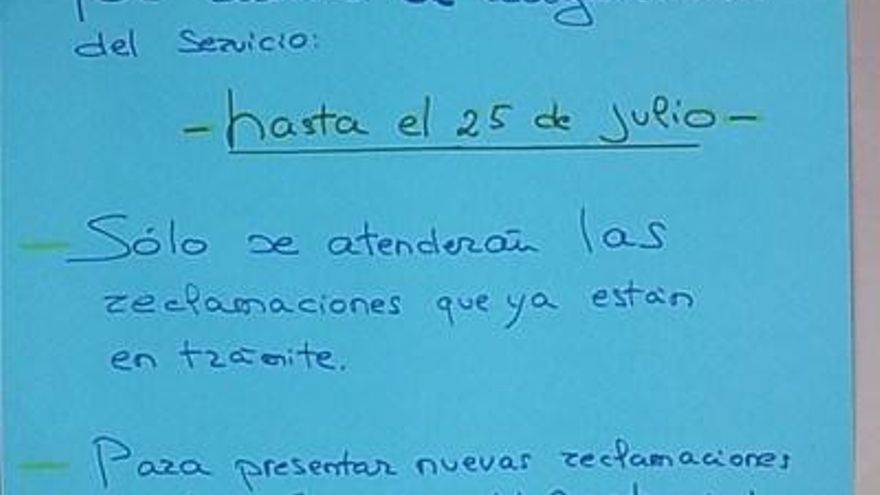 del Servicio:
- hasta el 25 de julio -
- Sólo se atenderán las
reclamaciones que ya están
en trámite.
- Para presentar nuevas reclamaciones